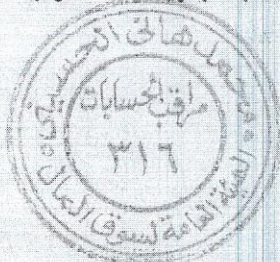 هانى الحسينى
مراقب الحسابات
٣١٦
الهيئة العامة لسوق المال